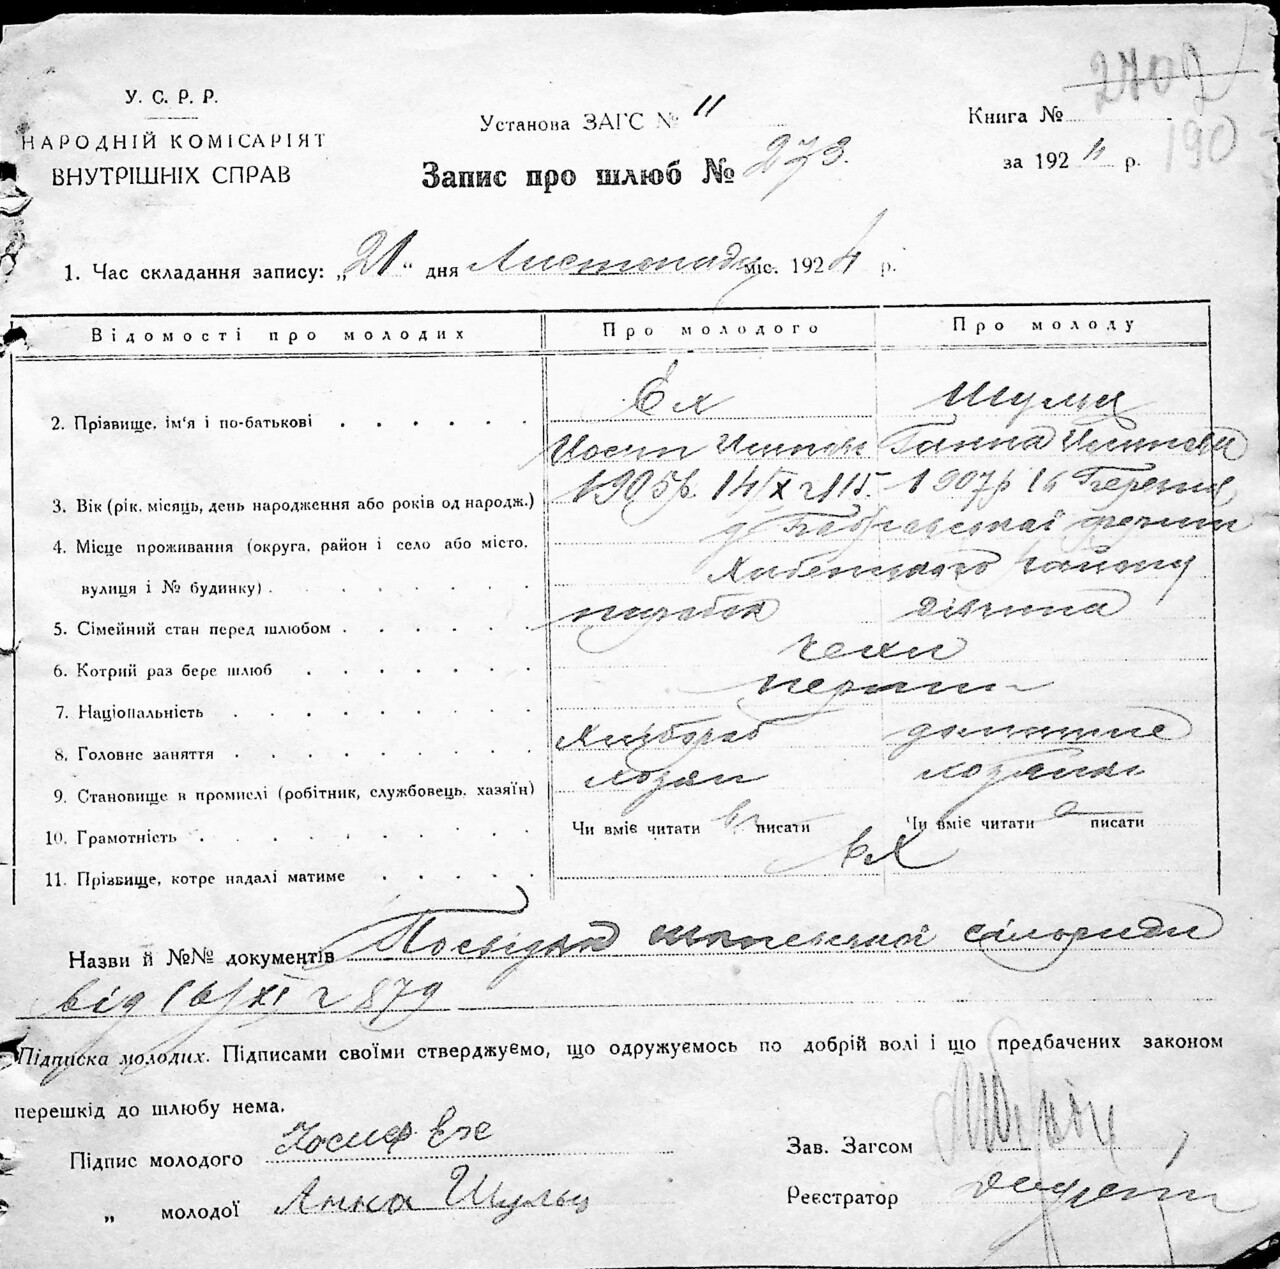 2707
190
У. С. Р. Р.
НАРОДНІЙ КОМІСАРІЯТ
ВНУТРІШНІХ СПРАВ
Установа ЗАГС № 11
Запис про шлюб № 273.
Книга №
за 1924 р.
1. Час складання запису: „21“ дня Листопаду міс. 1924 р.
Відомості про молодих Про молодого Про молоду
2. Прізвище, ім'я і по-батькові Ех Шульц
Йосип Ганна
3. Вік (рік, місяць, день народження або років од народж.) 1905р. 14/X 1907р 16 Березня
4. Місце проживання (округа, район і село або місто,
вулиця і № будинку) району
5. Сімейний стан перед шлюбом парубок дівчина
6. Котрий раз бере шлюб чехи
7. Національність перший
8. Головне заняття Хлібороб домашнє
9. Становище в промислі (робітник, службовець, хазяїн) хозяїн
10. Грамотність Чи вміє читати писати Чи вміє читати писати
11. Прізвище, котре надалі матиме Ех
Назви й №№ документів Посвідка сільради
від 16/XI 879
Підписка молодих. Підписами своїми стверджуємо, що одружуємось по добрій волі і що предбачених законом
перешкід до шлюбу нема.
Підпис молодого Йосиф Ехе
„ молодої Анна Шульц
Зав. Загсом
Реєстратор